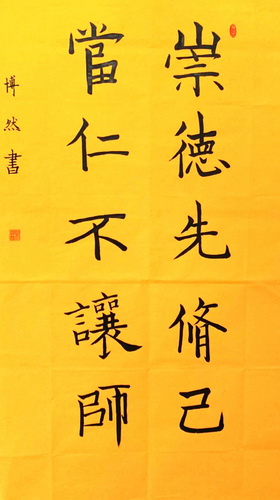 崇德先脩己
當仁不讓師
博然書